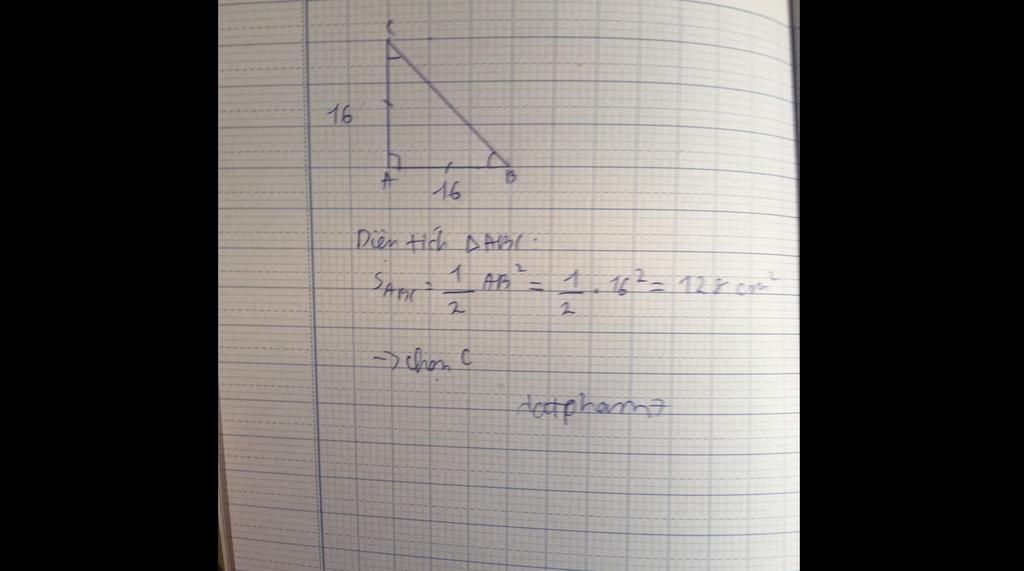 C
16
A
B
16
Diện tích ΔABC:
S_ABC = 1/2 AB² = 1/2 . 16² = 128 cm²
→ chọn C
datpham7